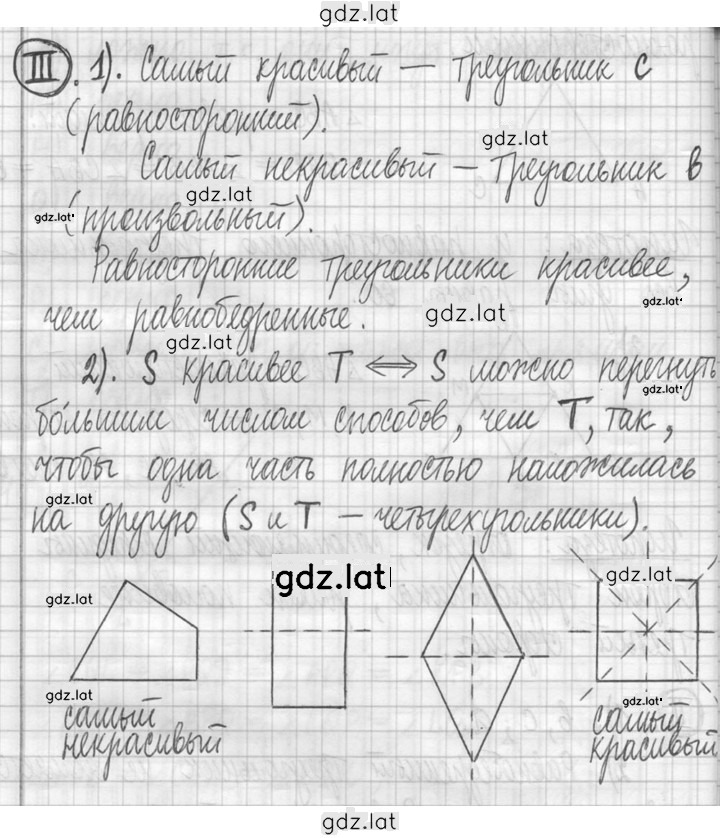 gdz.lat
III. 1). Самый красивый — треугольник С
(равносторонний).
gdz.lat
Самый некрасивый — треугольник В
gdz.lat
gdz.lat
(произвольный).
Равносторонние треугольники красивее,
gdz.lat
чем равнобедренные.
gdz.lat
gdz.lat
2). S красивее T ⟺ S можно перегнуть
gdz.lat
бóльшим числом способов, чем T, так,
чтобы одна часть полностью наложилась
gdz.lat
на другую (S и T — четырехугольники).
gdz.lat
gdz.lat
gdz.lat
gdz.lat
gdz.lat
самый
некрасивый
самый
красивый
gdz.lat